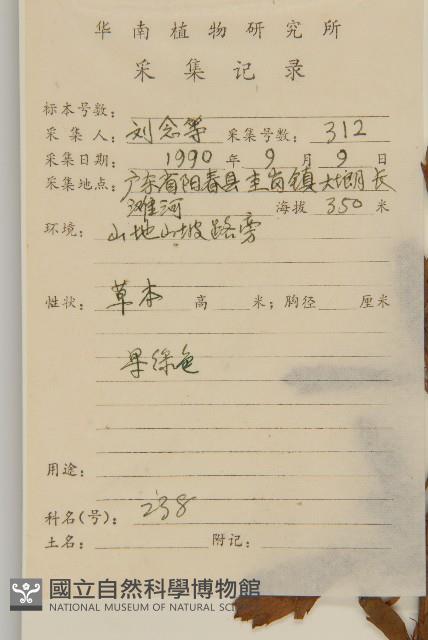 华南植物研究所
采集记录
标本号数：
采集人：刘念等 采集号数：312
采集日期：1990年9月9日
采集地点：广东省阳春县圭岗镇大朗长
滩河 海拔350米
环境：山地山坡路旁
性状：草本 高 米；胸径 厘米
果绿色
用途：
科名(号)：238
土名： 附记：
國立自然科學博物館
NATIONAL MUSEUM OF NATURAL